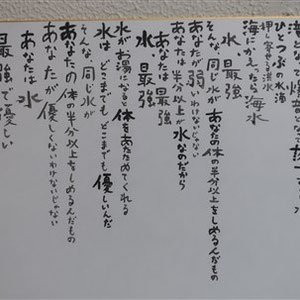 ひとつぶの水
押し寄せる洪水
海にかえったら海水
水 最強
そんな、同じ水が あなたの体の半分以上をしめるんだもの
あなたが弱いわけないじゃない
あなたは半分以上が水なのだから
あなたは最強
水 最強
水がお湯になると体をあたためてくれる
水は、どこまでもどこまでも優しいんだ
そんな、同じ水が
あなたの体の半分以上をしめるんだもの
あなたが優しくないわけないじゃない
あなたは水
最強で優しい